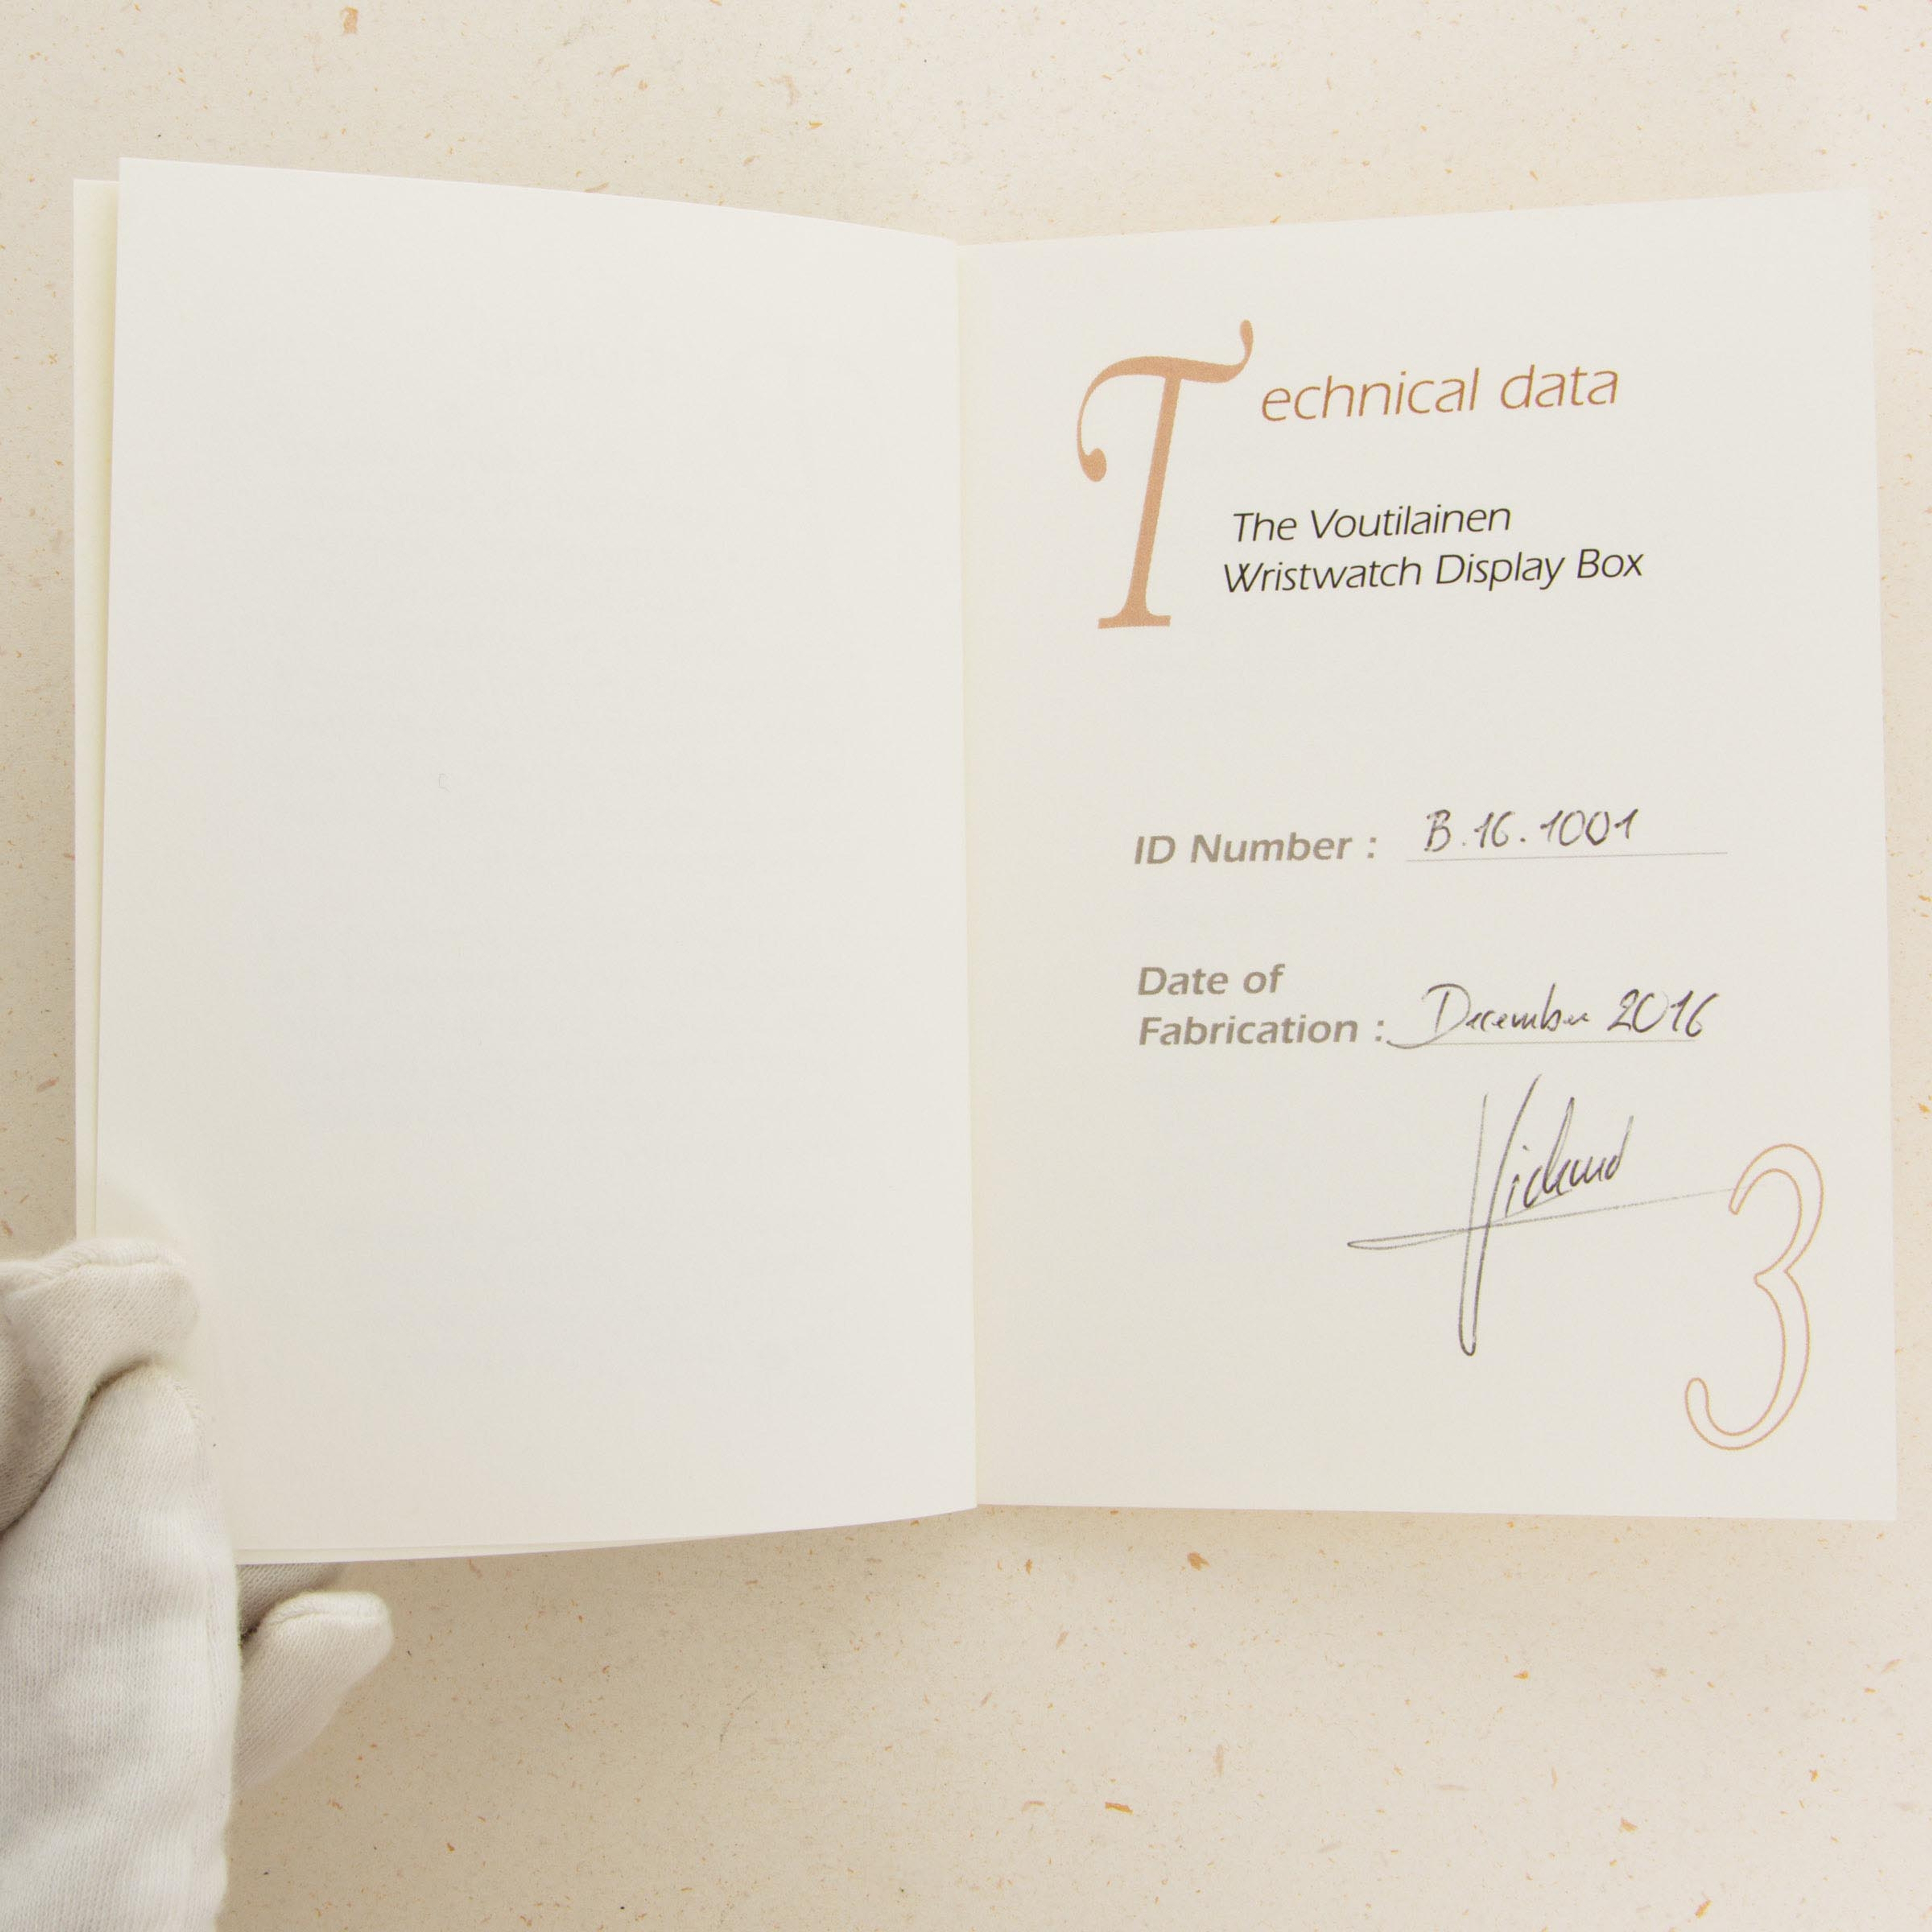 Technical data
The Voutilainen
Wristwatch Display Box
ID Number : B.16.1001
Date of
Fabrication : December 2016
3